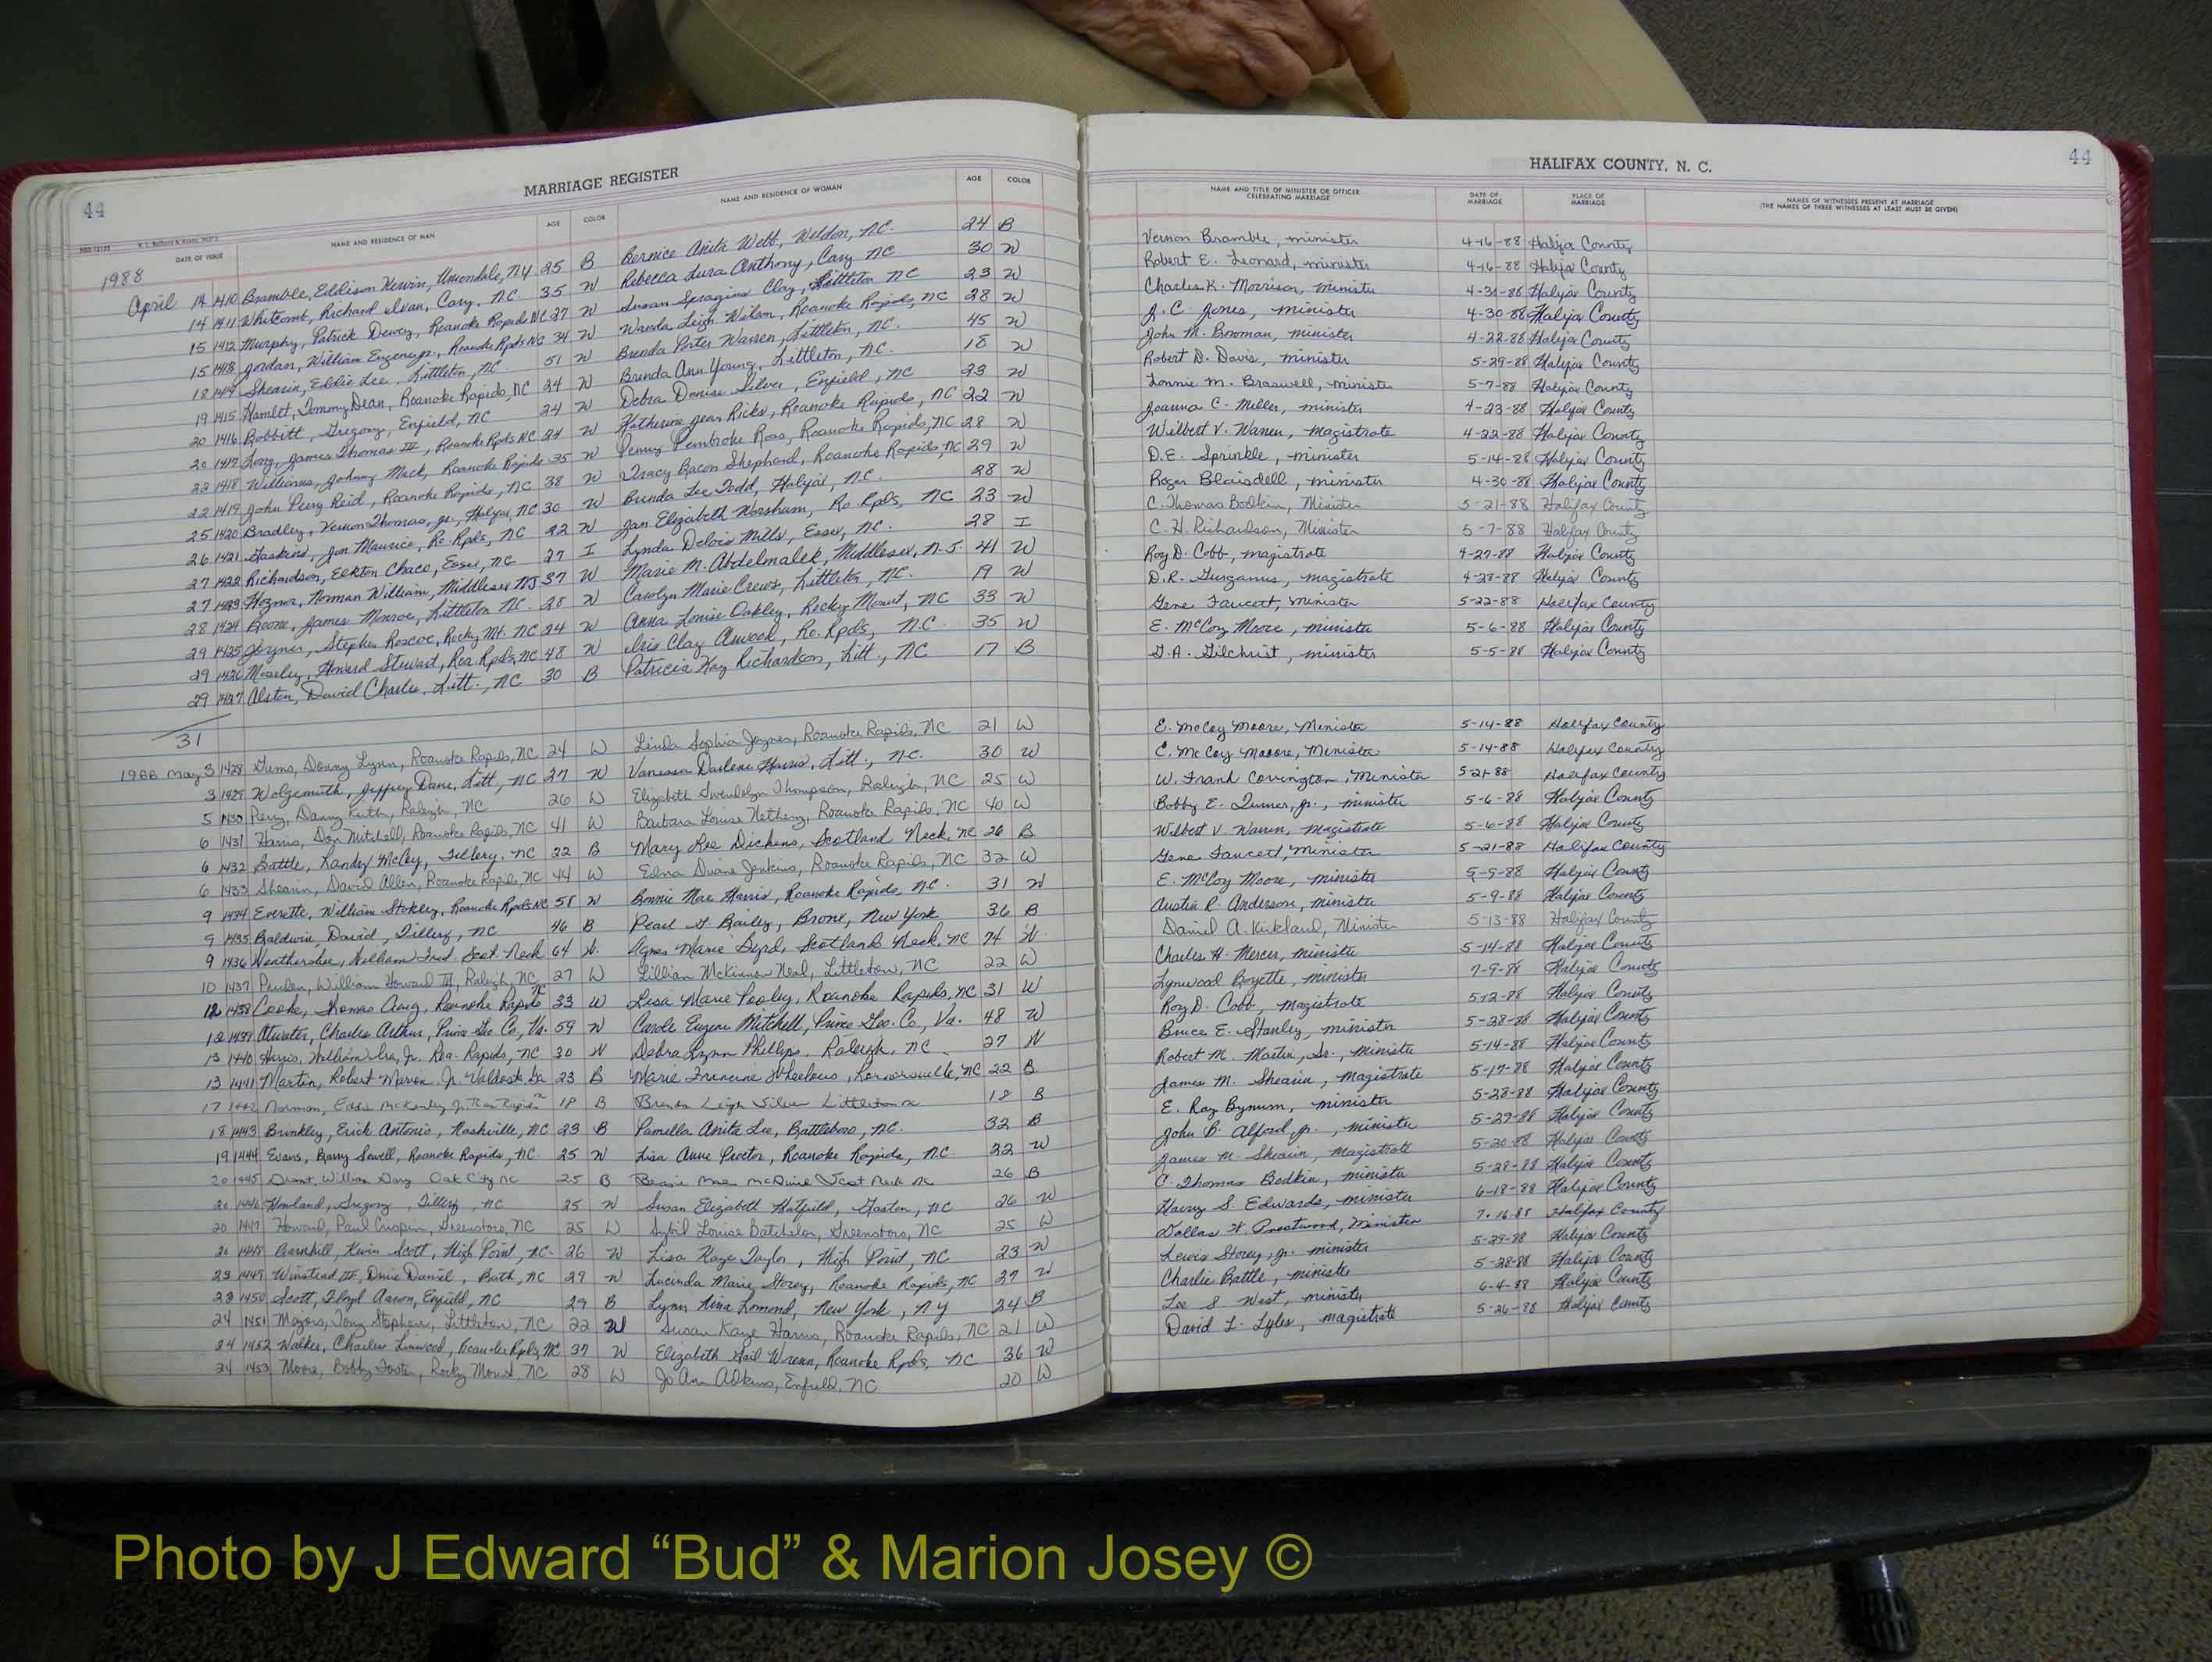 44 MARRIAGE REGISTER
DATE OF ISSUE NAME AND RESIDENCE OF MAN AGE COLOR NAME AND RESIDENCE OF WOMAN AGE COLOR
1988
April 14 1410 Bramble, Eddison Kerwin, Uniondale, NY 25 B Bernice Anita Webb, Weldon, NC. 24 B
14 1411 Whitcomb, Richard Ivan, Cary, NC. 35 W Rebecca Lura Anthony, Cary NC 30 W
15 1412 Murphy, Patrick Dewey, Roanoke Rapids NC 27 W Susan Spragins Clay, Littleton NC 23 W
15 1413 Jordan, William Eugene Jr., Roanoke Rpds NC 34 W Wanda Leigh Wilson, Roanoke Rapids, NC 28 W
18 1414 Shearin, Eddie Lee, Littleton, NC. 51 W Brenda Porter Warren, Littleton, NC. 45 W
19 1415 Hamlet, Tommy Dean, Roanoke Rapids, NC 24 W Brenda Ann Young, Littleton, NC. 18 W
20 1416 Bobbitt, Gregory, Enfield, NC 24 W Debra Denise Silver, Enfield, NC 23 W
20 1417 Long, James Thomas III, Roanoke Rpds NC 24 W Katherine Jean Ricks, Roanoke Rapids, NC 22 W
22 1418 Williams, Johnny Mack, Roanoke Rapids 35 W Penny Pembroke Ross, Roanoke Rapids, NC 28 W
22 1419 John Perry Reid, Roanoke Rapids, NC 38 W Tracy Bacon Shephard, Roanoke Rapids, NC 29 W
25 1420 Bradley, Vernon Thomas, Jr., Halifax, NC 30 W Brenda Lee Todd, Halifax, NC. 28 W
26 1421 Gaskins, Jon Maurice, Ro. Rpds, NC 22 W Jan Elizabeth Worsham, Ro. Rpds, NC 23 W
27 1422 Richardson, Elkton Chace, Essex, NC 27 I Lynda Delois Mills, Essex, NC. 28 I
27 1423 Norman William, Middlesex NJ 37 W Marie M. Abdelmalek, Middlesex, N.J. 41 W
28 1424 Boone, James Monroe, Littleton NC. 28 W Carolyn Marie Crews, Littleton, NC. 19 W
29 1425 Joyner, Stephen Roscoe, Rocky Mt. NC 24 W Anna Louise Oakley, Rocky Mount, NC 33 W
29 1426 Moseley, Howard Stewart, Roa Rpds, NC 48 W Iris Clay, Ro. Rpds, NC. 35 W
29 1427 Alston, David Charles, Litt., NC 30 B Patricia Kay Richardson, Litt., NC 17 B
31
1988 May 3 1428 Gums, Donny Lynn, Roanoke Rapids, NC 24 W Linda Sophia Joyner, Roanoke Rapids, NC 21 W
3 1429 Wolgemuth, Jeffrey Dane, Litt, NC 27 W Vanessa Darlene Harris, Litt., NC. 30 W
5 1430 Perry, Danny Keith, Raleigh, NC 26 W Elizabeth Gwendolyn Thompson, Raleigh, NC 25 W
6 1431 Harris, Don Mitchell, Roanoke Rapids, NC 41 W Barbara Louise Nethery, Roanoke Rapids, NC 40 W
6 1432 Battle, Randy McCoy, Tillery, NC 22 B Mary Lee Dickens, Scotland Neck, NC 26 B
6 1433 Shearin, David Allen, Roanoke Rapids, NC 44 W Edna Duane Jenkins, Roanoke Rapids, NC 32 W
9 1434 Everette, William Stokley, Roanoke Rpds NC 58 W Bonnie Mae Harris, Roanoke Rapids, NC. 31 W
9 1435 Baldwin, David, Tillery, NC 46 B Pearl H. Bailey, Bronx, New York 36 B
9 1436 Weathersbee, William Fred, Scot. Neck 64 W. Agnes Marie Byrd, Scotland Neck, NC 74 W
10 1437 Pruden, William Howard III, Raleigh, NC 27 W Lillian McKinnon Neal, Littleton, NC 22 W
12 1438 Cooke, Thomas Craig, Roanoke Rapids NC 33 W Lisa Marie Pooley, Roanoke Rapids, NC 31 W
12 1439 Atwater, Charles Arthur, Prince Geo Co, Va. 59 W Carole Eugene Mitchell, Prince Geo. Co., Va. 48 W
13 1440 William Ira, Jr. Roa. Rapids, NC 30 W Debra Lynn Phillips, Raleigh, NC. 27 W
13 1441 Martin, Robert Marion, Jr. Valdosta Ga 23 B Marie Francine Wheelous, Kernersville, NC 22 B
17 1442 Norman, Eddie McKinley Jr Roa Rapids NC 18 B Brenda Leigh Silver Littleton NC 18 B
18 1443 Brinkley, Erick Antonio, Nashville, NC 23 B Pamella Anita Lee, Battleboro, NC. 32 B
19 1444 Evans, Barry Sewell, Roanoke Rapids, NC. 25 W Lisa Anne Proctor, Roanoke Rapids, NC. 22 W
20 1445 William Oak City NC 25 B Bessie Mae McDuie Scot Neck NC 26 B
20 1446 Howland, Gregory, Tillery, NC 25 W Susan Elizabeth Hatfield, Gaston, NC 26 W
20 1447 Howard, Paul Crispin, Greensboro, NC 25 W Sybil Louise Batchelor, Greensboro, NC 25 W
20 1448 Barnhill, Kevin Scott, High Point, NC. 26 W Lisa Kaye Taylor, High Point, NC 23 W
23 1449 Winstead III, Daniel, Bath, NC 29 W Lucinda Marie Storey, Roanoke Rapids, NC 27 W
23 1450 Scott, Floyd Aaron, Enfield, NC 29 B Lynn Nina Lomond, New York, NY 24 B
24 1451 Majors, Tony Stephen, Littleton, NC 22 W Susan Kaye Harris, Roanoke Rapids, NC 21 W
24 1452 Walker, Charles Linwood, Roanoke Rpds, NC 37 W Elizabeth Gail Wrenn, Roanoke Rpds, NC 36 W
24 1453 Moore, Bobby Foster, Rocky Mount, NC 28 W Jo Ann Adkins, Enfield, NC 20 W
HALIFAX COUNTY, N. C. 44
NAME AND TITLE OF MINISTER OR OFFICER CELEBRATING MARRIAGE DATE OF MARRIAGE PLACE OF MARRIAGE NAMES OF WITNESSES PRESENT AT MARRIAGE
(THE NAMES OF THREE WITNESSES AT LEAST MUST BE GIVEN)
Vernon Bramble, minister 4-16-88 Halifax County
Robert E. Leonard, minister 4-16-88 Halifax County
Charles K. Morrison, minister 4-30-88 Halifax County
J. C. Jones, minister 4-30-88 Halifax County
John M. Bowman, minister 4-22-88 Halifax County
Robert D. Davis, minister 5-29-88 Halifax County
Lonnie M. Braswell, minister 5-7-88 Halifax County
Joanna C. Miller, minister 4-23-88 Halifax County
Wilbert V. Warren, magistrate 4-22-88 Halifax County
D.E. Sprinkle, minister 5-14-88 Halifax County
Roger Blaisdell, minister 4-30-88 Halifax County
C. Thomas Bodkin, Minister 5-21-88 Halifax County
C. H. Richardson, Minister 5-7-88 Halifax County
Roy D. Cobb, magistrate 4-27-88 Halifax County
D.R. Gurganus, magistrate 4-28-88 Halifax County
Gene Faucett, minister 5-22-88 Halifax County
E. McCoy Moore, minister 5-6-88 Halifax County
G.A. Gilchrist, minister 5-5-88 Halifax County
E. McCoy Moore, Minister 5-14-88 Halifax County
E. McCoy Moore, Minister 5-14-88 Halifax County
W. Frank Covington, Minister 5-21-88 Halifax County
Bobby E. Turner, Jr., minister 5-6-88 Halifax County
Wilbert V. Warren, Magistrate 5-6-88 Halifax County
Gene Faucett, Minister 5-21-88 Halifax County
E. McCoy Moore, minister 5-9-88 Halifax County
Austin R. Anderson, minister 5-9-88 Halifax County
Daniel A. Kirkland, Minister 5-13-88 Halifax County
Charles H. Mercer, minister 5-14-88 Halifax County
Lynwood Boyette, minister 7-9-88 Halifax County
Roy D. Cobb, magistrate 5-12-88 Halifax County
Bruce E. Stanley, minister 5-28-88 Halifax County
Robert M. Martin, Sr., minister 5-14-88 Halifax County
James M. Shearin, Magistrate 5-17-88 Halifax County
E. Ray Bynum, minister 5-28-88 Halifax County
John B. Alford, Jr., minister 5-29-88 Halifax County
James M. Shearin, Magistrate 5-20-88 Halifax County
C. Thomas Bodkin, minister 5-28-88 Halifax County
Harry S. Edwards, minister 6-18-88 Halifax County
Dallas W. Prestwood, Minister 7-16-88 Halifax County
Lewis Storey, Jr. minister 5-29-88 Halifax County
Charlie Battle, minister 5-28-88 Halifax County
Lee S. West, minister 6-4-88 Halifax County
David L. Lyles, magistrate 5-26-88 Halifax County
Photo by J Edward “Bud” & Marion Josey ©